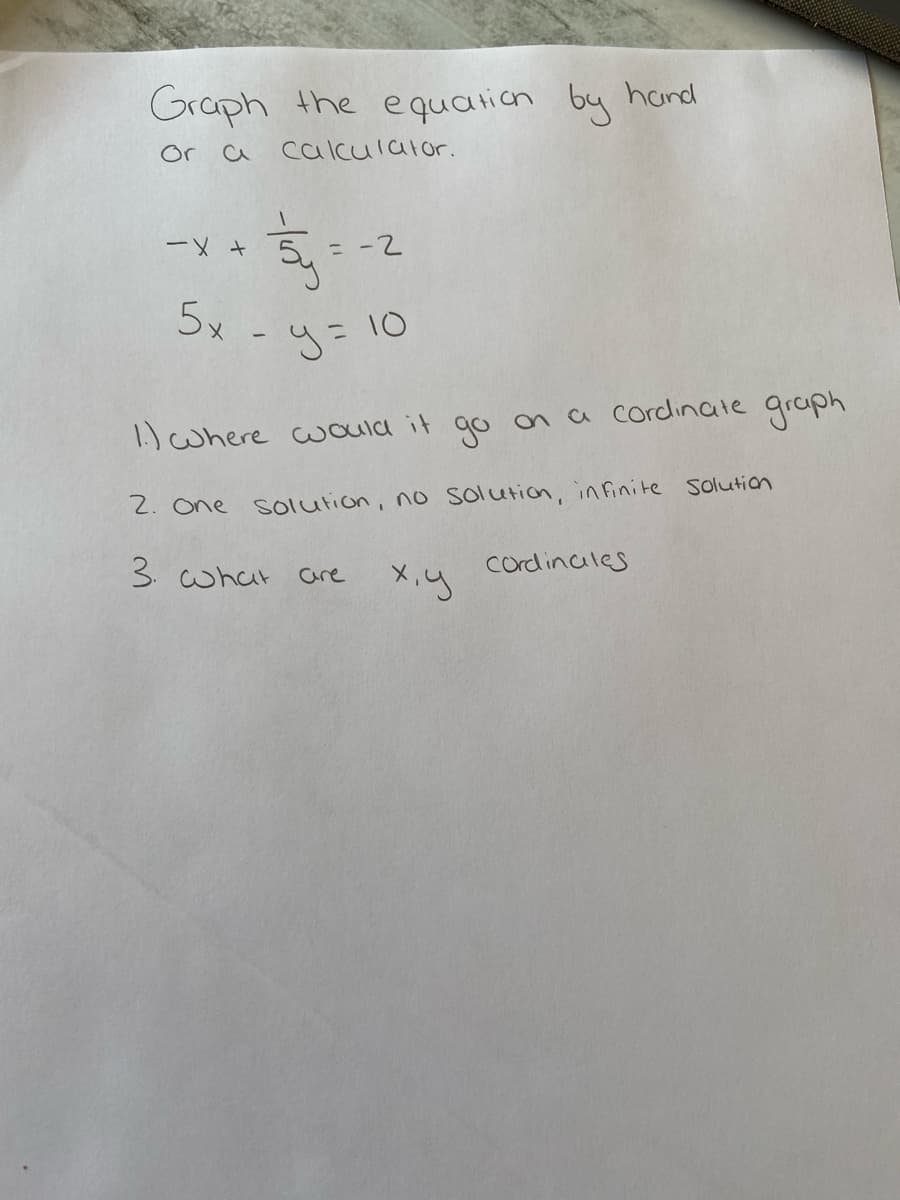 Graph the equation by hand
or a calculator.
-x + 1/5y = -2
5x - y = 10
1.) where would it go on a cordinate graph
2. One solution, no solution, infinite solution
3. what are x,y cordinates